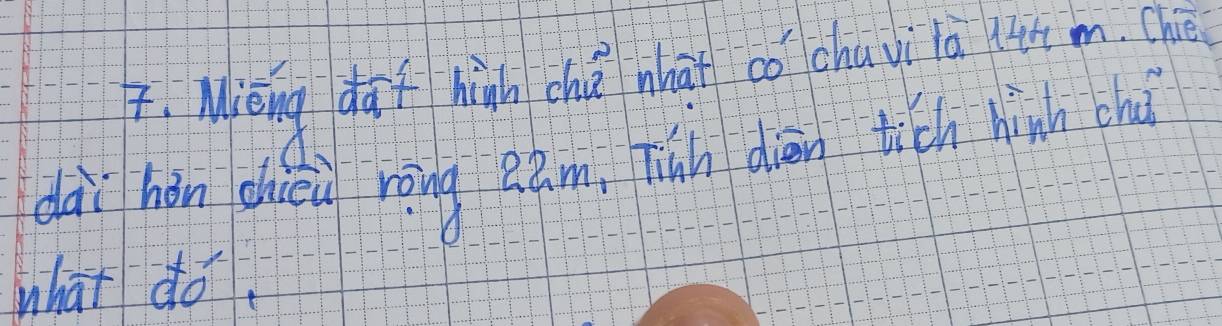 7. Miếng đất hình chữ nhật có chu vi là 144 m. Chiề
dài hơn chiều rộng 22m. Tính diện tích hình chữ
nhật đó.